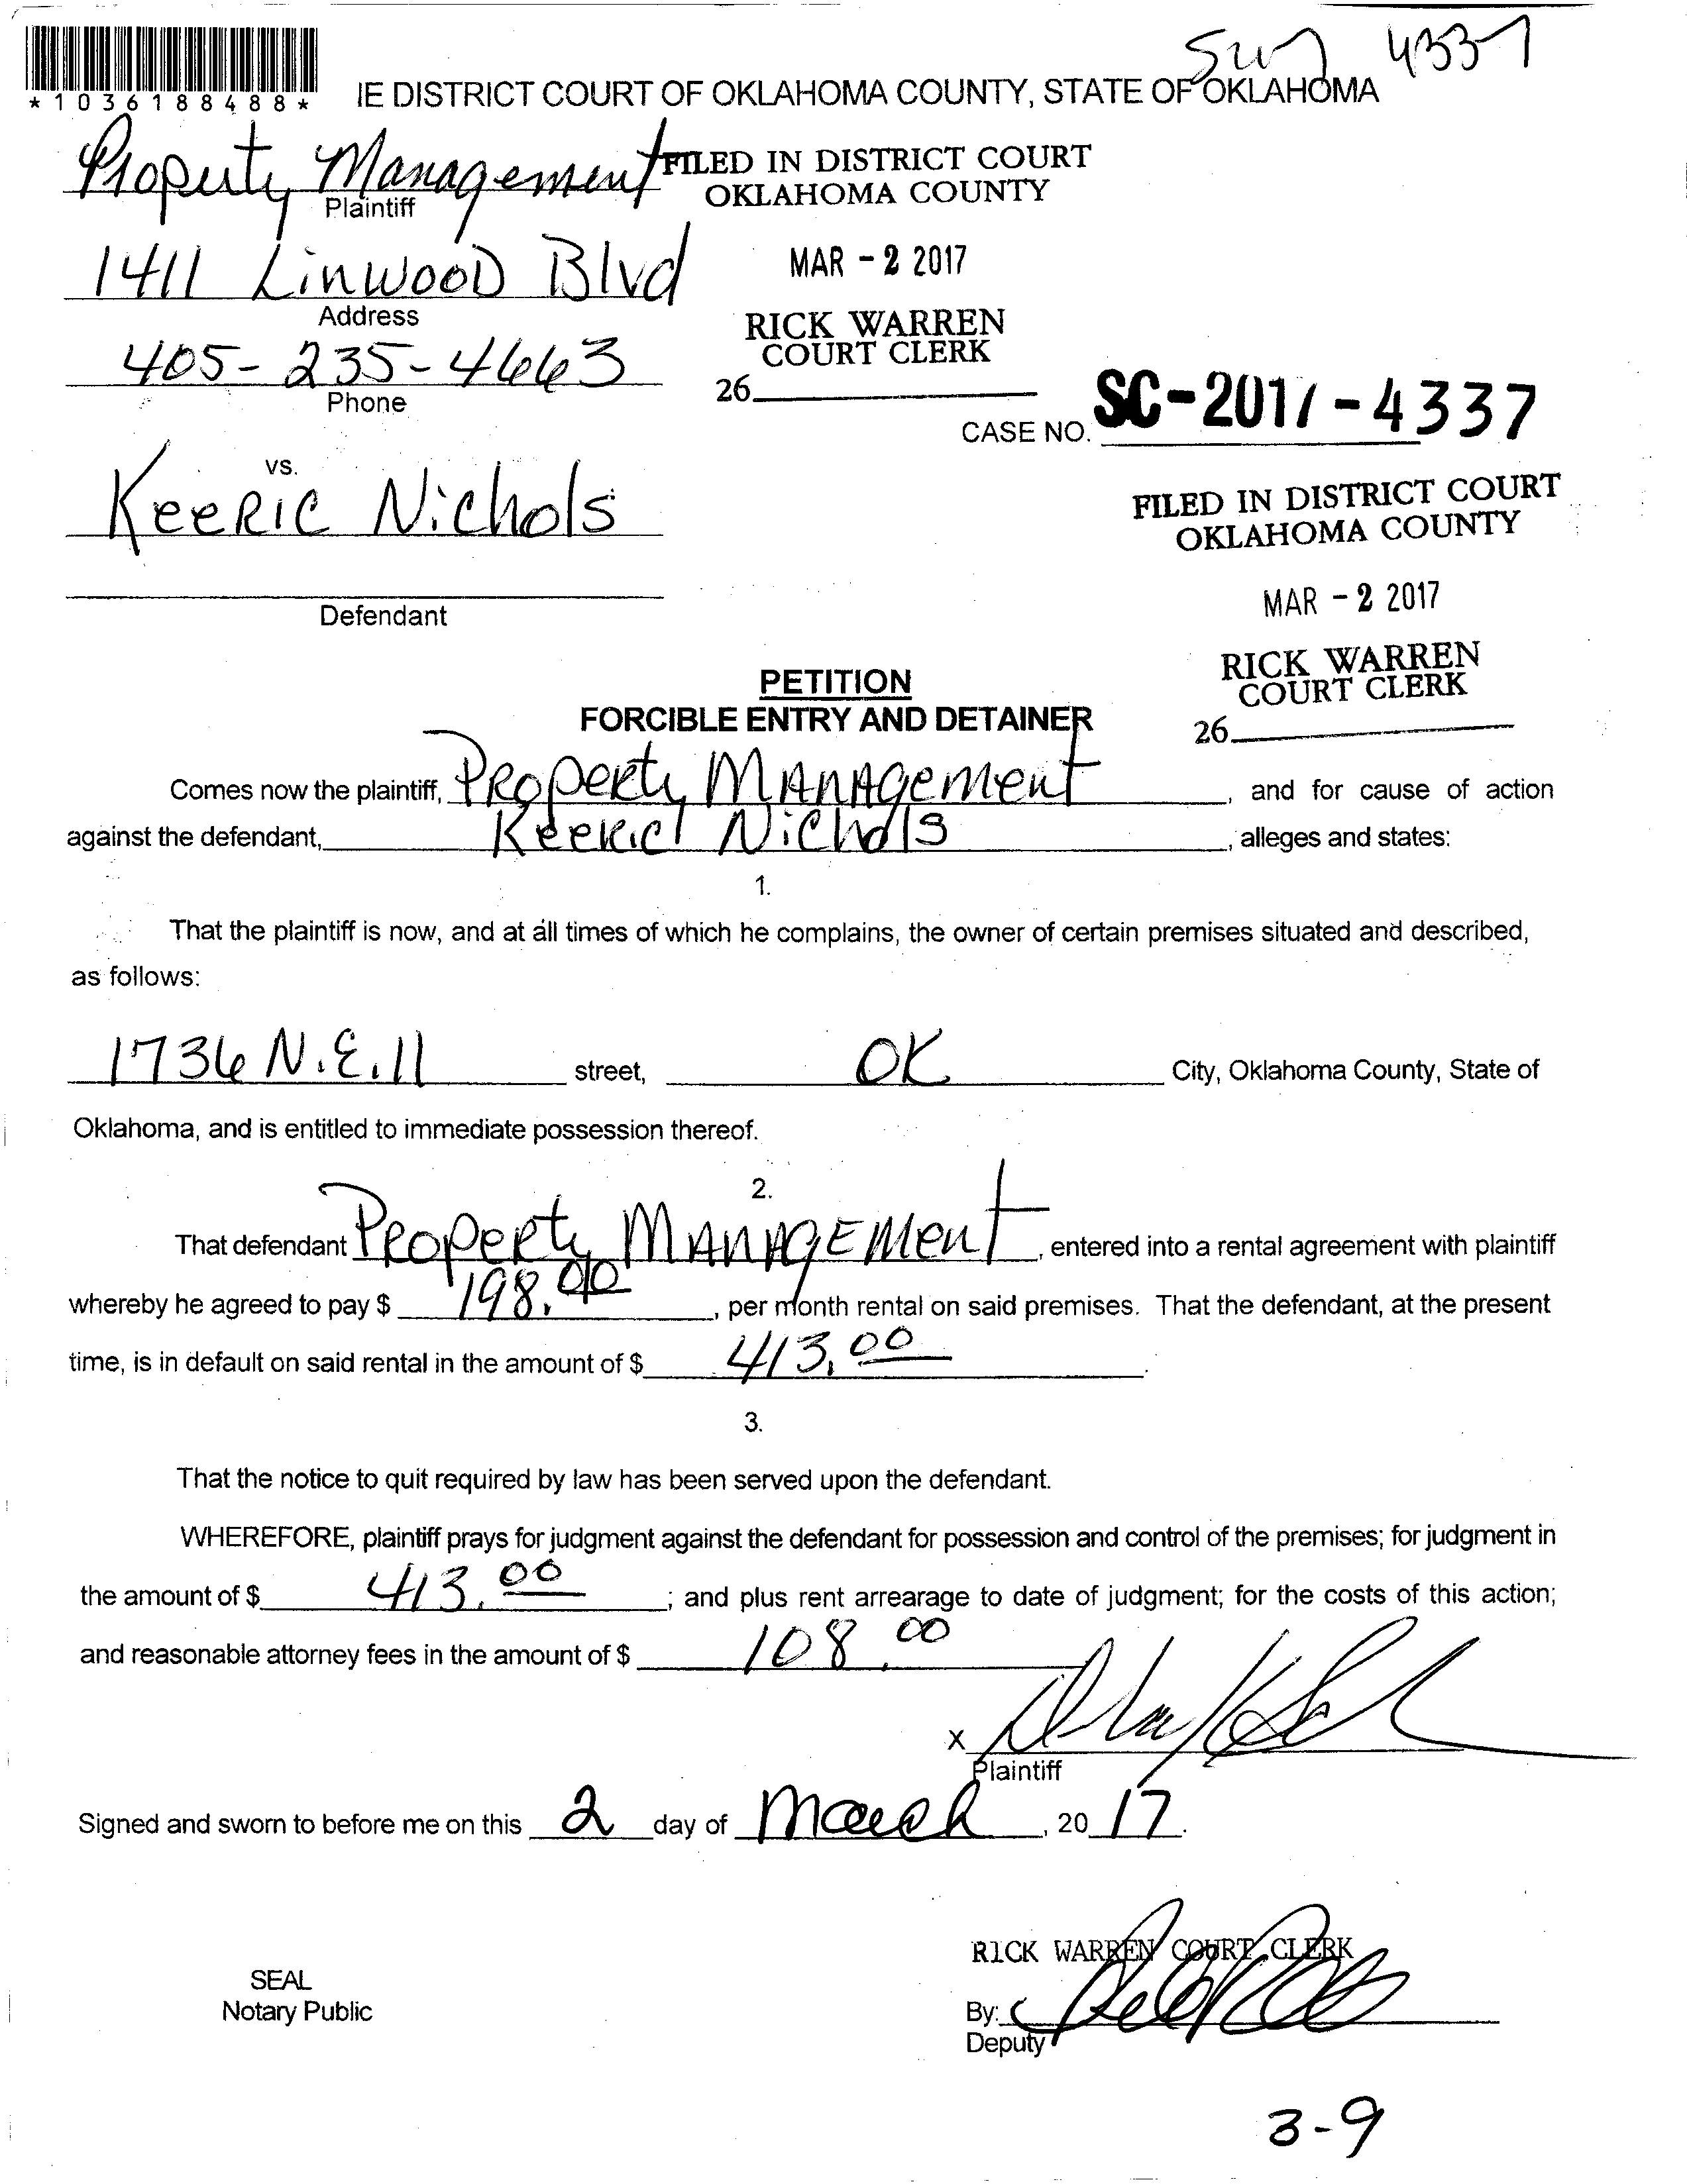 4337
*1036188488*
IE DISTRICT COURT OF OKLAHOMA COUNTY, STATE OF OKLAHOMA
Property Management
Plaintiff
FILED IN DISTRICT COURT
OKLAHOMA COUNTY
1411 Linwood Blvd
Address
MAR - 2 2017
405-235-4663
Phone
RICK WARREN
COURT CLERK
26
CASE NO. SC-2017-4337
vs.
KeeRic Nichols
Defendant
FILED IN DISTRICT COURT
OKLAHOMA COUNTY
MAR - 2 2017
RICK WARREN
COURT CLERK
26
PETITION
FORCIBLE ENTRY AND DETAINER
Comes now the plaintiff, PRoperty MANAgement, and for cause of action
against the defendant, Nichols, alleges and states:
1.
That the plaintiff is now, and at all times of which he complains, the owner of certain premises situated and described,
as follows:
1736 N.E.11 street, OK City, Oklahoma County, State of
Oklahoma, and is entitled to immediate possession thereof.
2.
That defendant PRopeRty MANAGEMent, entered into a rental agreement with plaintiff
whereby he agreed to pay $ 198.00, per month rental on said premises. That the defendant, at the present
time, is in default on said rental in the amount of $ 413.00.
3.
That the notice to quit required by law has been served upon the defendant.
WHEREFORE, plaintiff prays for judgment against the defendant for possession and control of the premises; for judgment in
the amount of $ 413.00; and plus rent arrearage to date of judgment; for the costs of this action;
and reasonable attorney fees in the amount of $ 108.00
X
Plaintiff
Signed and sworn to before me on this 2 day of March, 20 17.
RICK WARREN COURT CLERK
SEAL
Notary Public
By:
Deputy
3-9